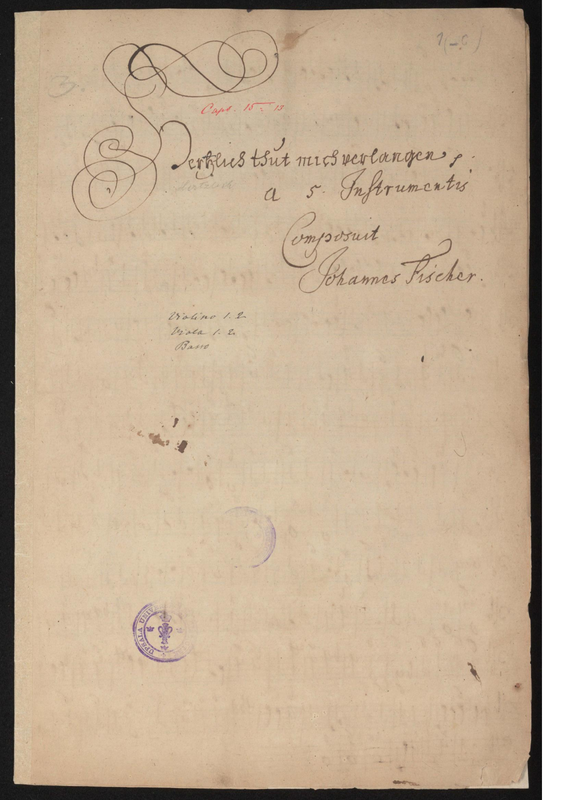 1(-6)
3.
Caps. 15:13
Hertzlich thut mich verlangen
a 5. Instrumentis
Composuit
Johannes Fischer.
Violino 1. 2.
Viola 1. 2.
Basso
UPSALA UNIV